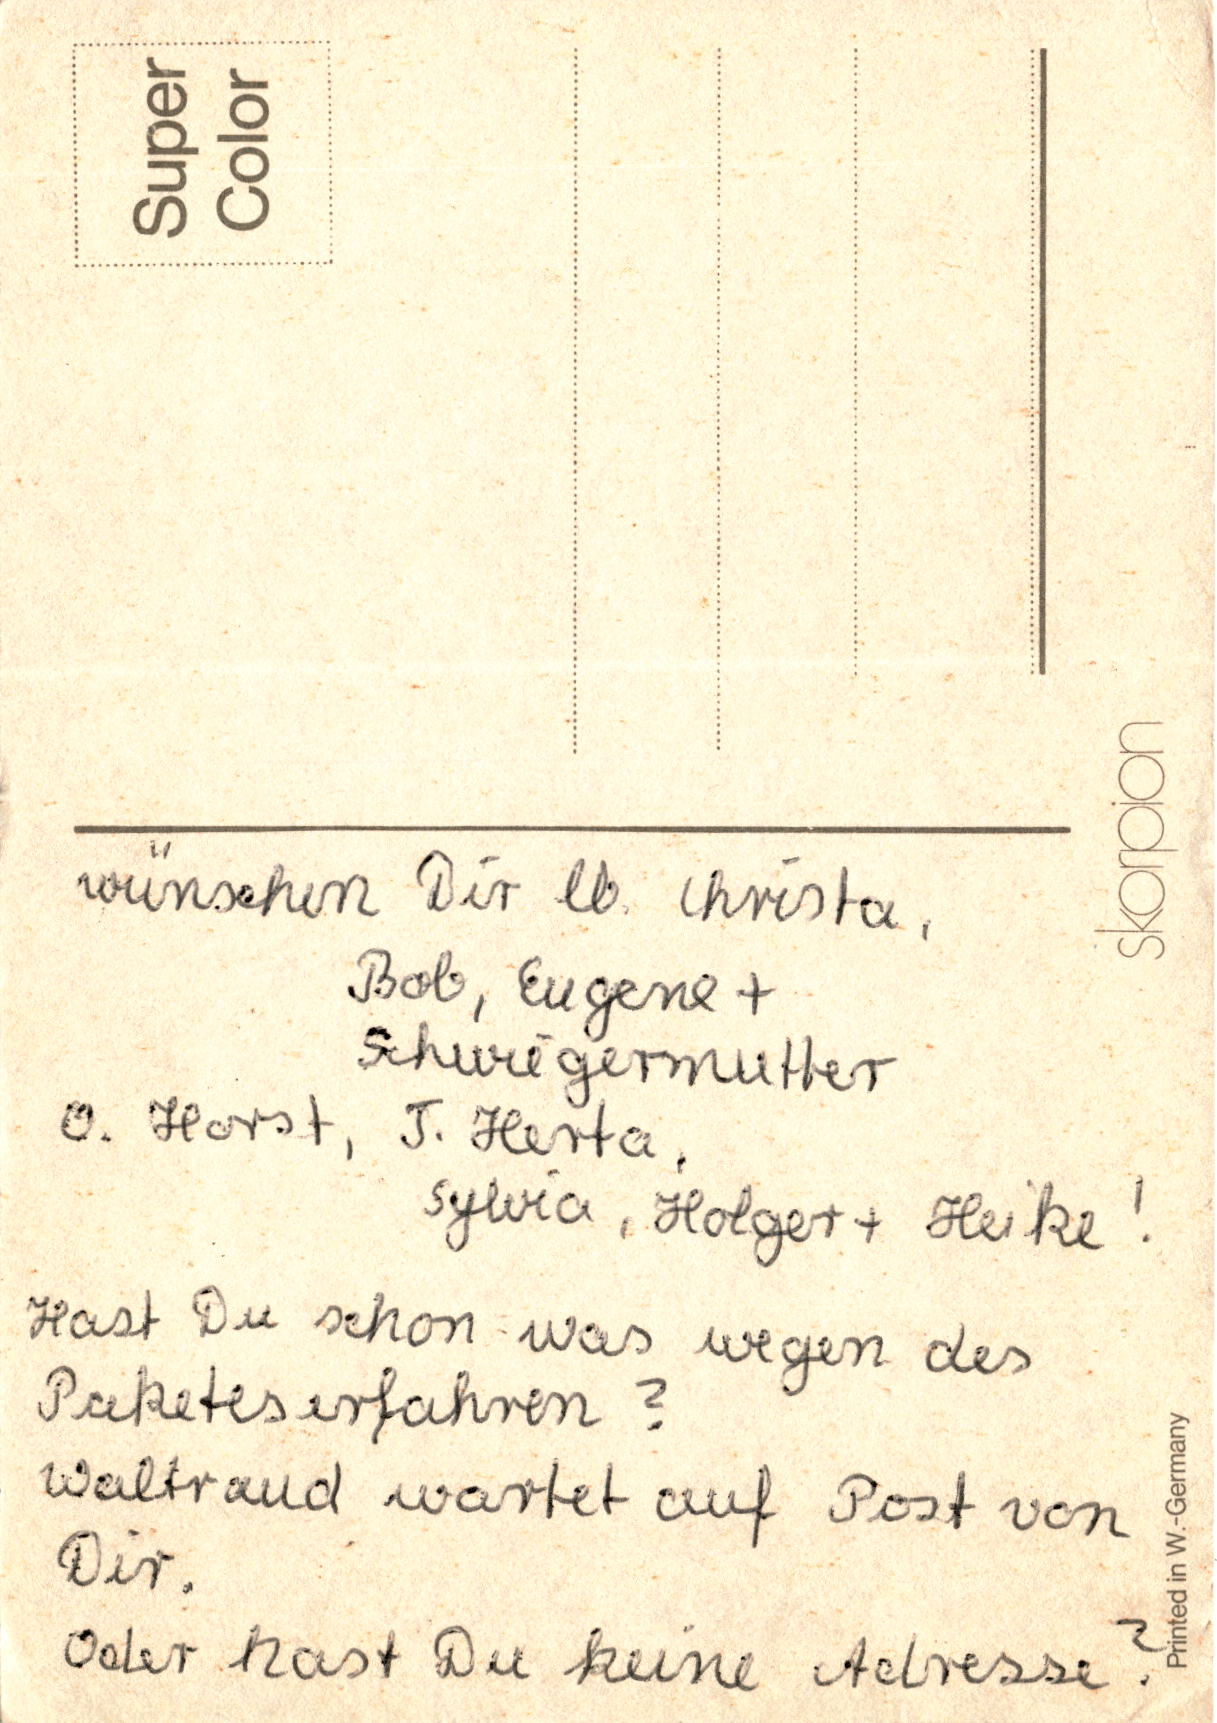 Super
Color
skorpion
wünschen Dir lb. Christa,
Bob, Eugene +
Schwiegermutter
O. Horst, T. Herta,
Sylvia, Holger + Heike!
Hast Du schon was wegen des
Paketes erfahren?
Waltraud wartet auf Post von
Dir.
Oder hast Du keine Adresse?
Printed in W.-Germany